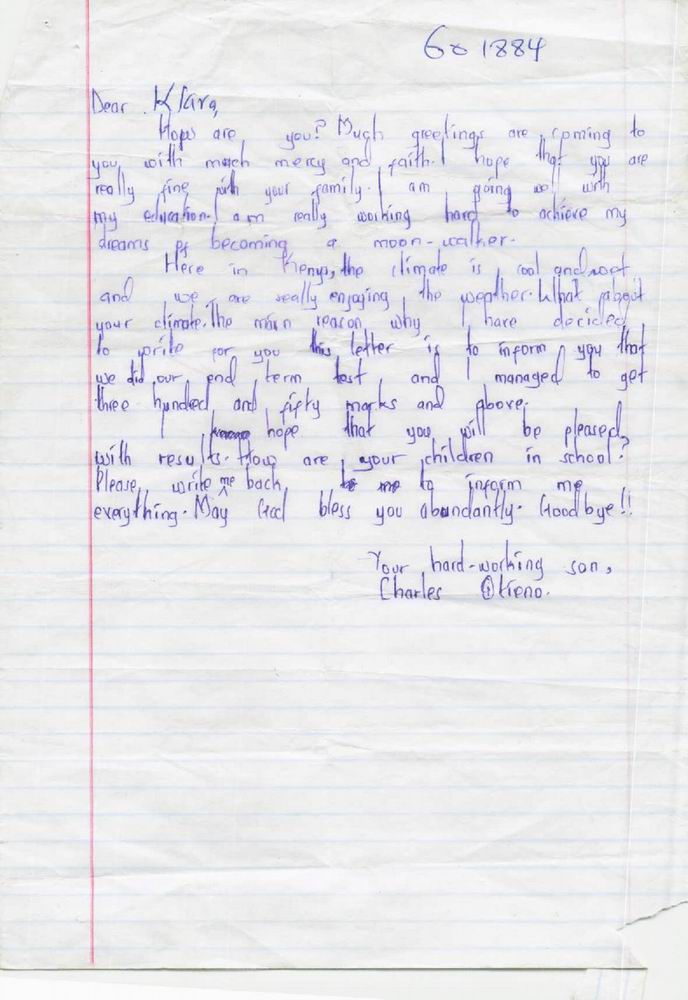 Go 1884
Dear Klara,
How are you? Much greetings are coming to
you with much mercy and faith. I hope that you are
really fine with your family. I am going well with
my education. I am really working hard to achieve my
dreams of becoming a moon-walker.
Here in Kenya, the climate is cool and wet
and we are really enjoying the weather. What about
your climate. The main reason why I have decided
to write for you this letter is to inform you that
we did our end term test and I managed to get
three hundred and fifty marks and above.
I hope that you will be pleased
with results. How are your children in school?
Please write me back, to inform me
everything. May God bless you abundantly. Goodbye!!
Your hard-working son,
Charles Otieno.